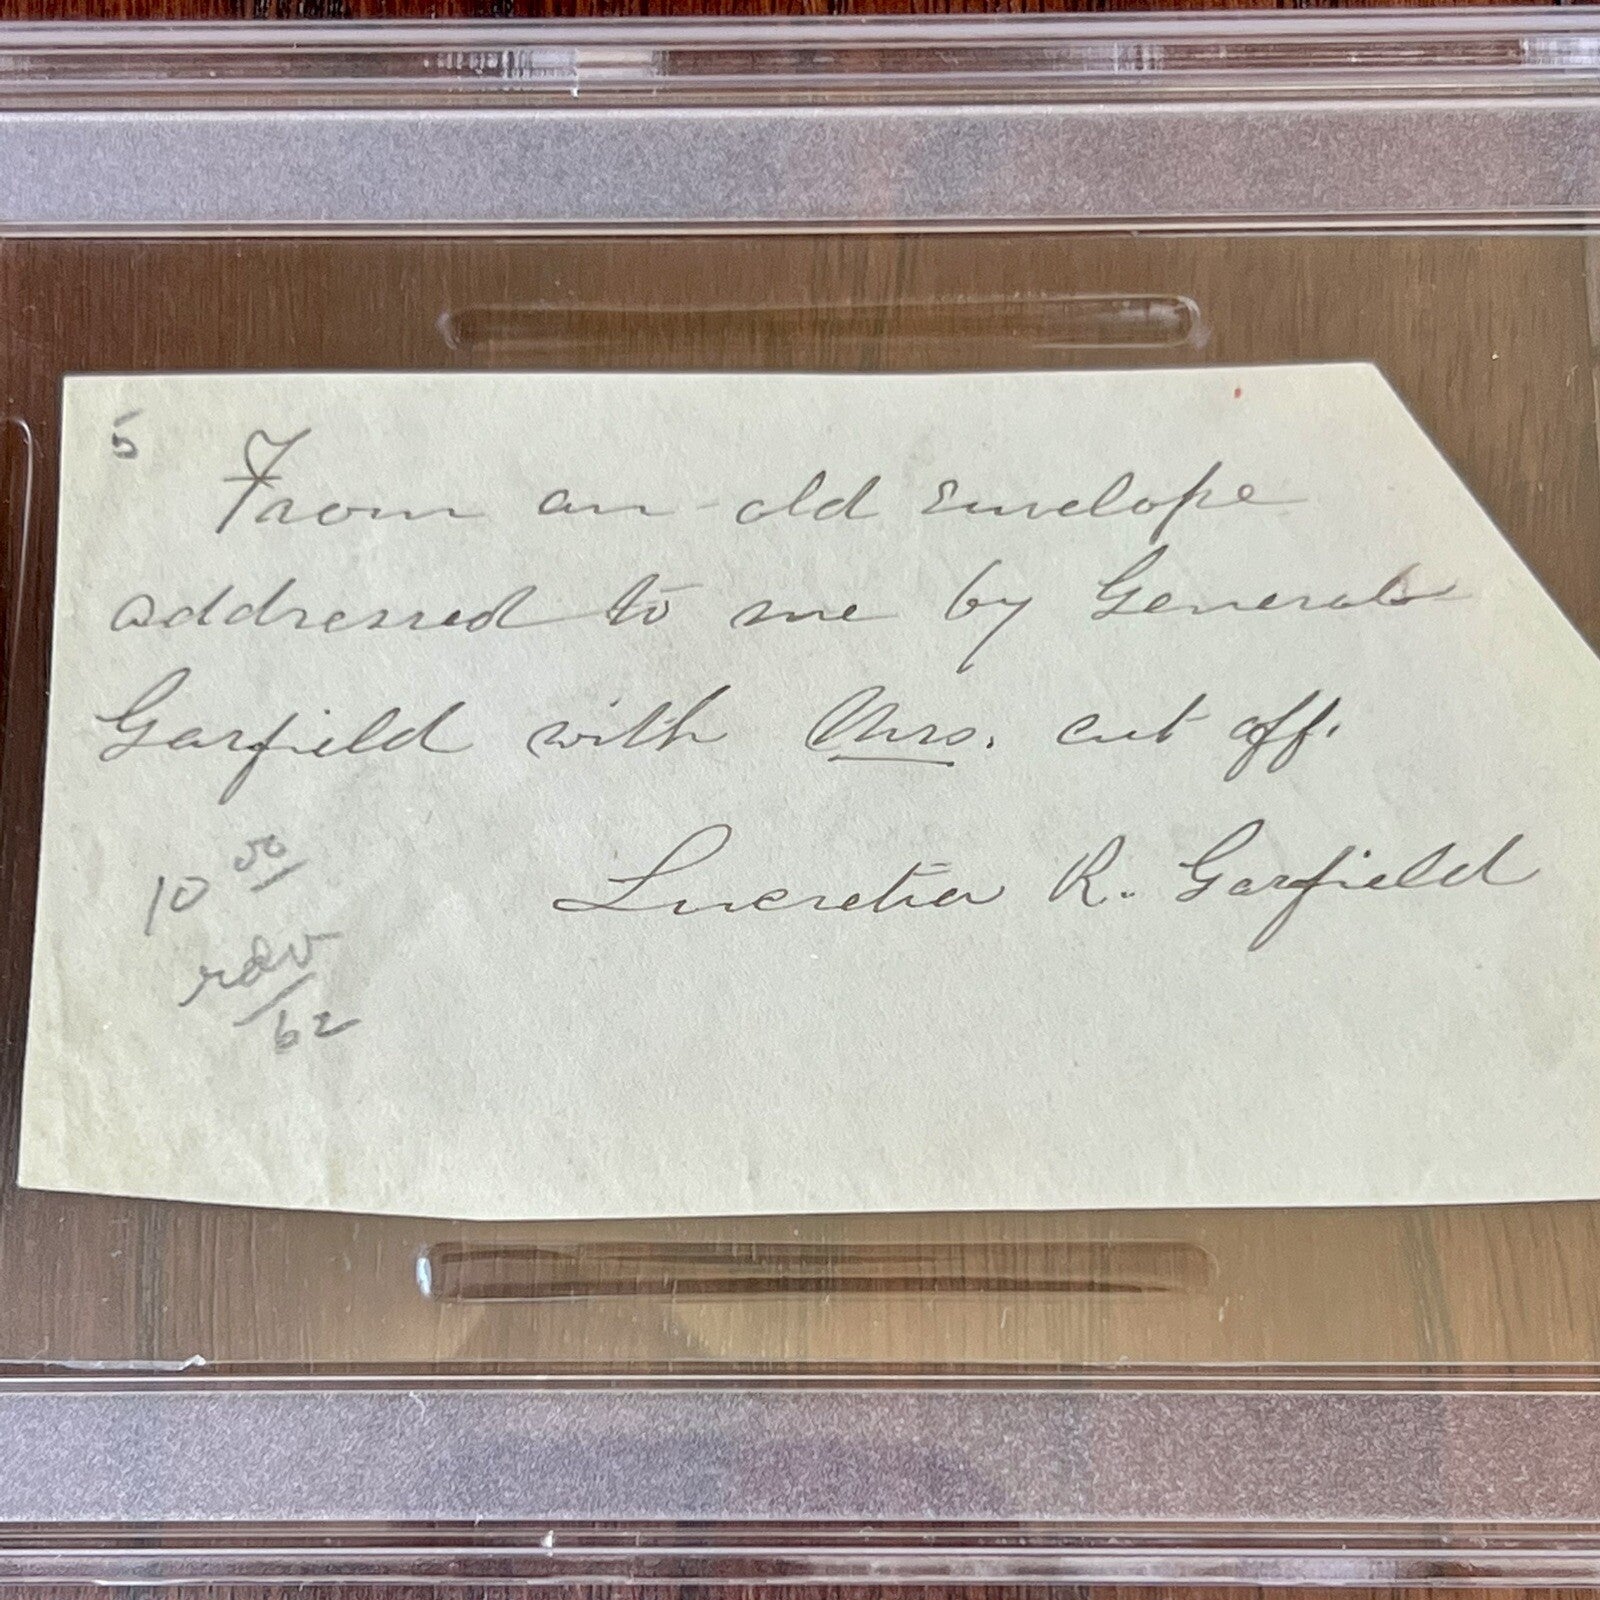 5
From an old envelope
addressed to me by General
Garfield with Mrs. cut off.
Lucretia R. Garfield
10 00
62